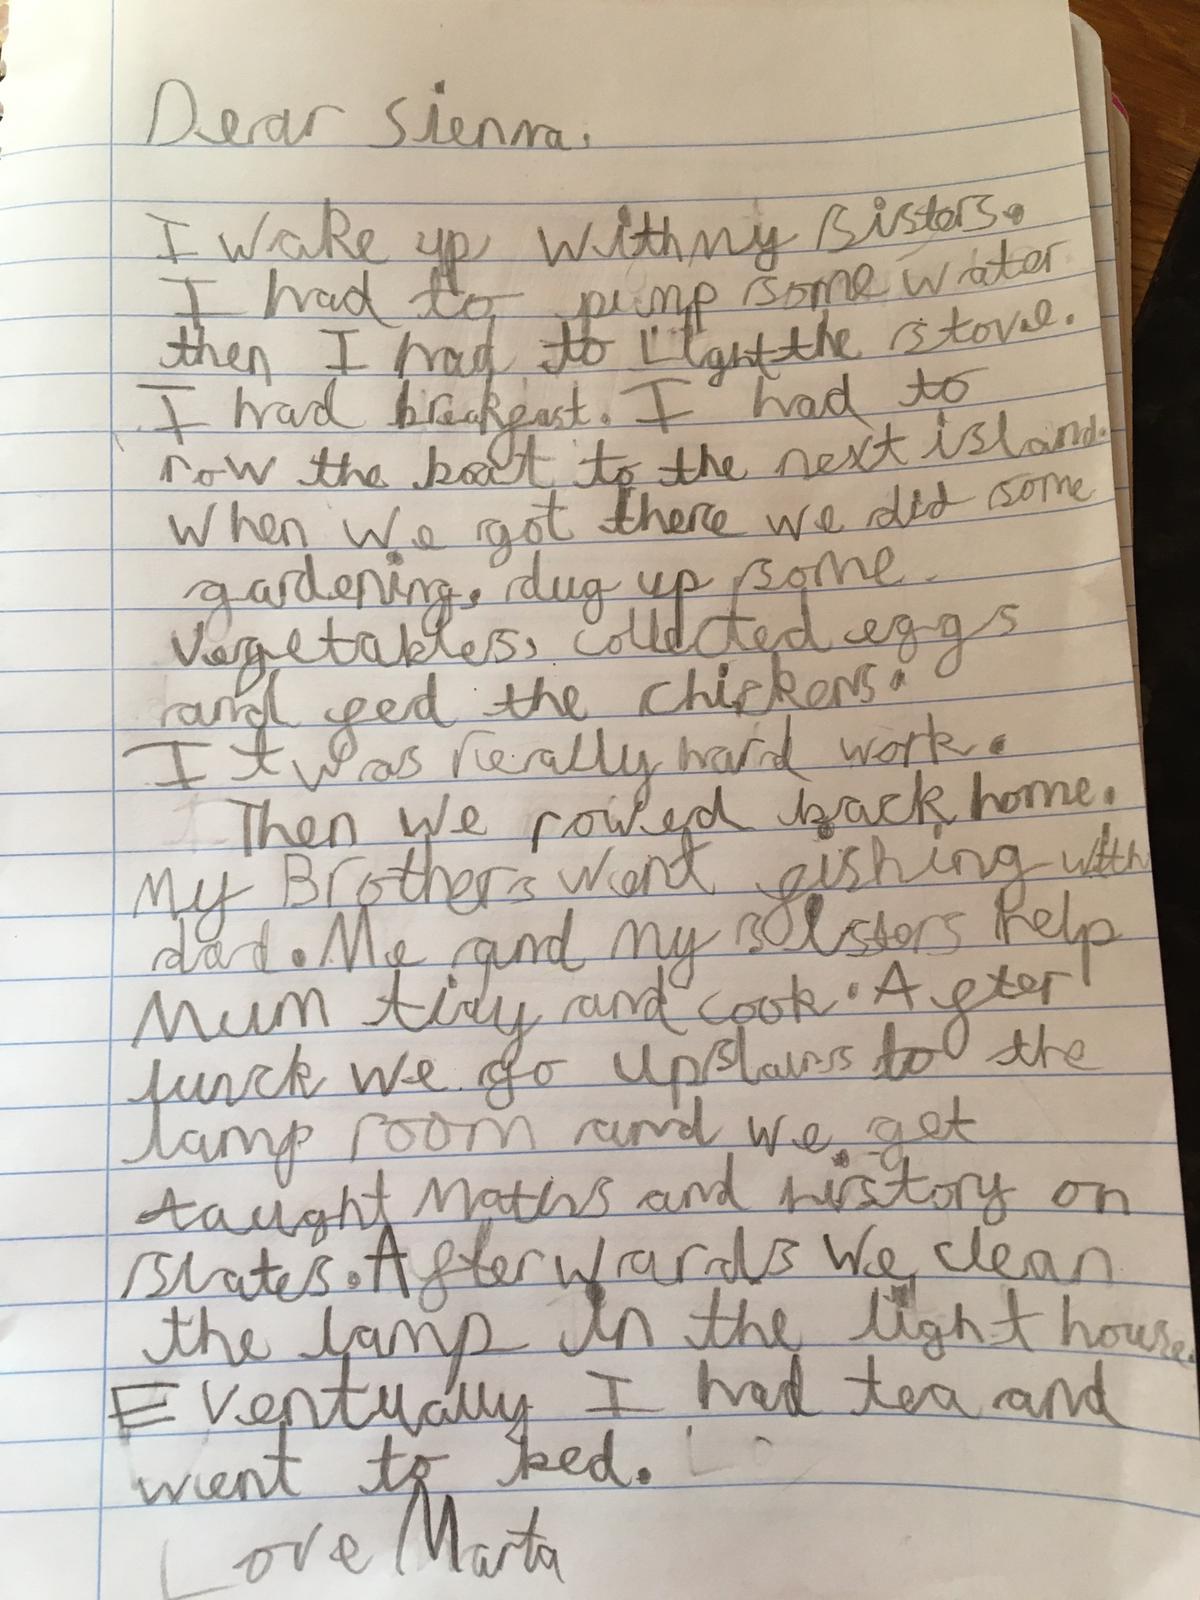 Dear Sienna.
I wake up with my sisters.
I had to pump some water
then I had to light the stove.
I had breakfast. I had to
row the boat to the next island.
When we got there we did some
gardening, dug up some
vegetables, collected eggs
and fed the chickens.
It was really hard work.
Then we rowed back home.
My Brothers went fishing with
dad. Me and my sisters help
Mum tidy and cook. After
lunck we go upstairs to the
lamp room and we get
taught Maths and history on
slates. Afterwards we clean
the lamp in the light house.
Eventually I had tea and
went to bed.
Love Marta